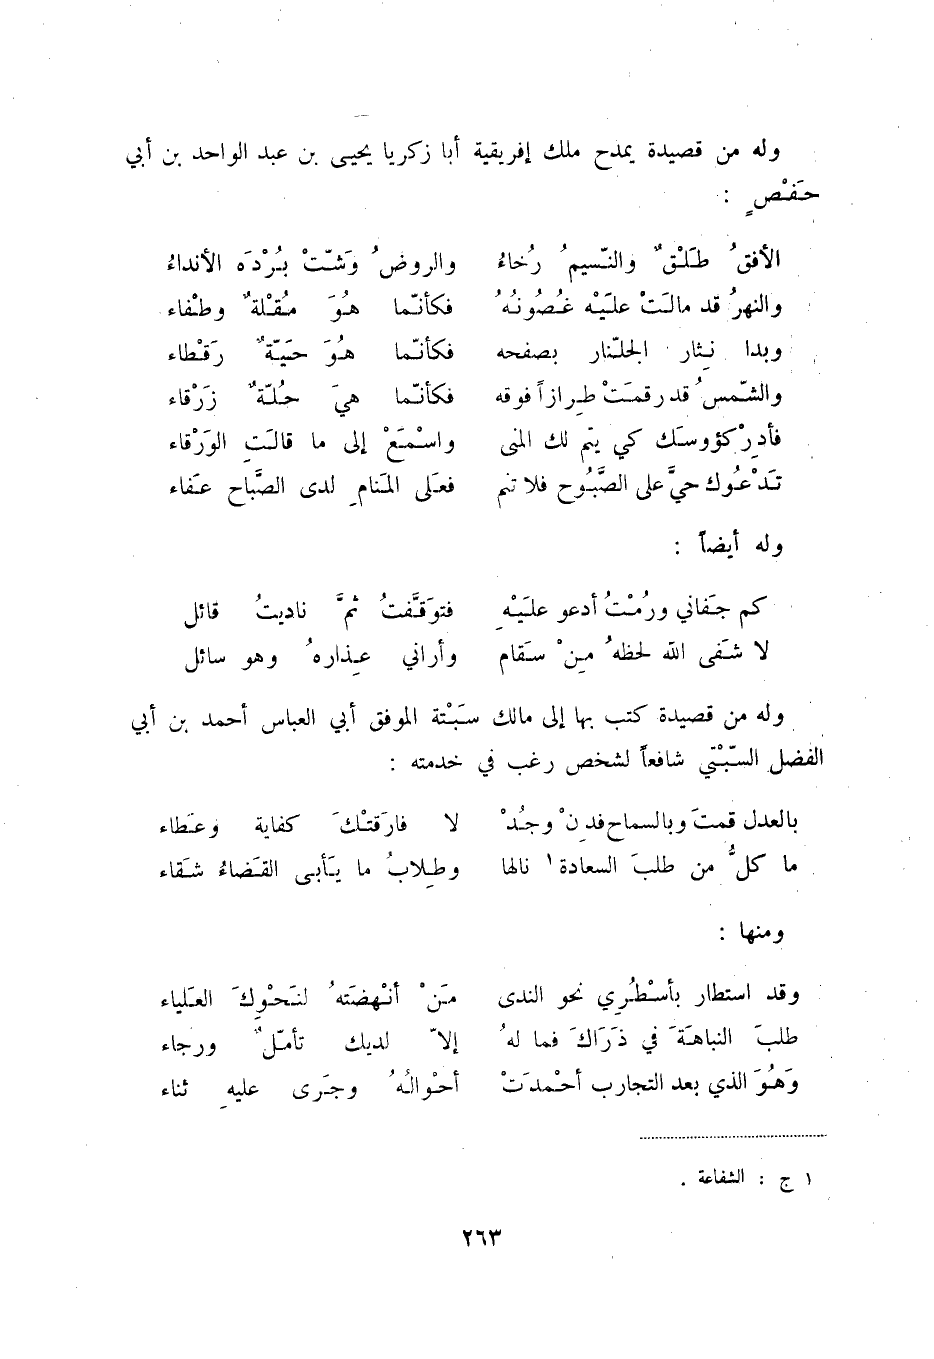 وله من قصيدة يمدح ملك إفريقية أبا زكريا يحيى بن عبد الواحد بن أبي
حَفْصٍ :
الأفقُ طَلْقٌ والنّسيمُ رُخاءُ والروضُ وَشّتْ بُرْدَه الأنداءُ
والنهرُ قد مالَتْ عليْه غُصُونُهُ فكأنّما هُوَ مُقْلةٌ وطْفاء
وبدا نِثار الجلّنار بصفحه فكأنّما هُوَ حَيّةٌ رَقْطاء
والشّمسُ قد رقمَتْ طِرازاً فوقه فكأنّما هيَ حُلّةٌ زَرْقاء
فأدِرْ كؤوسَك كي يتم لك المنى واسْمَعْ إلى ما قالَتِ الوَرْقاء
تَدْعُوك حيَّ على الصَّبُوح فلا تنم فعَلى المَنامِ لدى الصَّباح عفَاء
وله أيضاً :
كم جفَاني ورُمْتُ أدعو علَيْهِ فتوَقّفْتُ ثمَّ ناديتُ قائل
لا شفَى الله لحظهُ مِنْ سقَام وأراني عِذارهُ وهو سائل
وله من قصيدة كتب بها إلى مالك سَبْتة الموفق أبي العباس أحمد بن أبي
الفضل السّبْتي شافعاً لشخص رغب في خدمته :
بالعدل قمتَ وبالسماح فدِنْ وجُدْ لا فارَقتْكَ كفاية وعَطاء
ما كلُّ من طلبَ السعادة ١ نالها وطِلابُ ما يَأبى القَضاءُ شقَاء
ومنها :
وقد استطار بأسْطُري نحو الندى مَنْ أنْهضَتهُ لنَحْوِكَ العَلياء
طلبَ النباهَةَ في ذَرَاكَ فما لهُ إلاّ لديك تأمّلٌ ورجاء
وَهُوَ الذي بعد التجارب أحْمدَتْ أحْوالُهُ وجَرى عليهِ ثناء
١ ج : الشفاعة .
٢٦٣